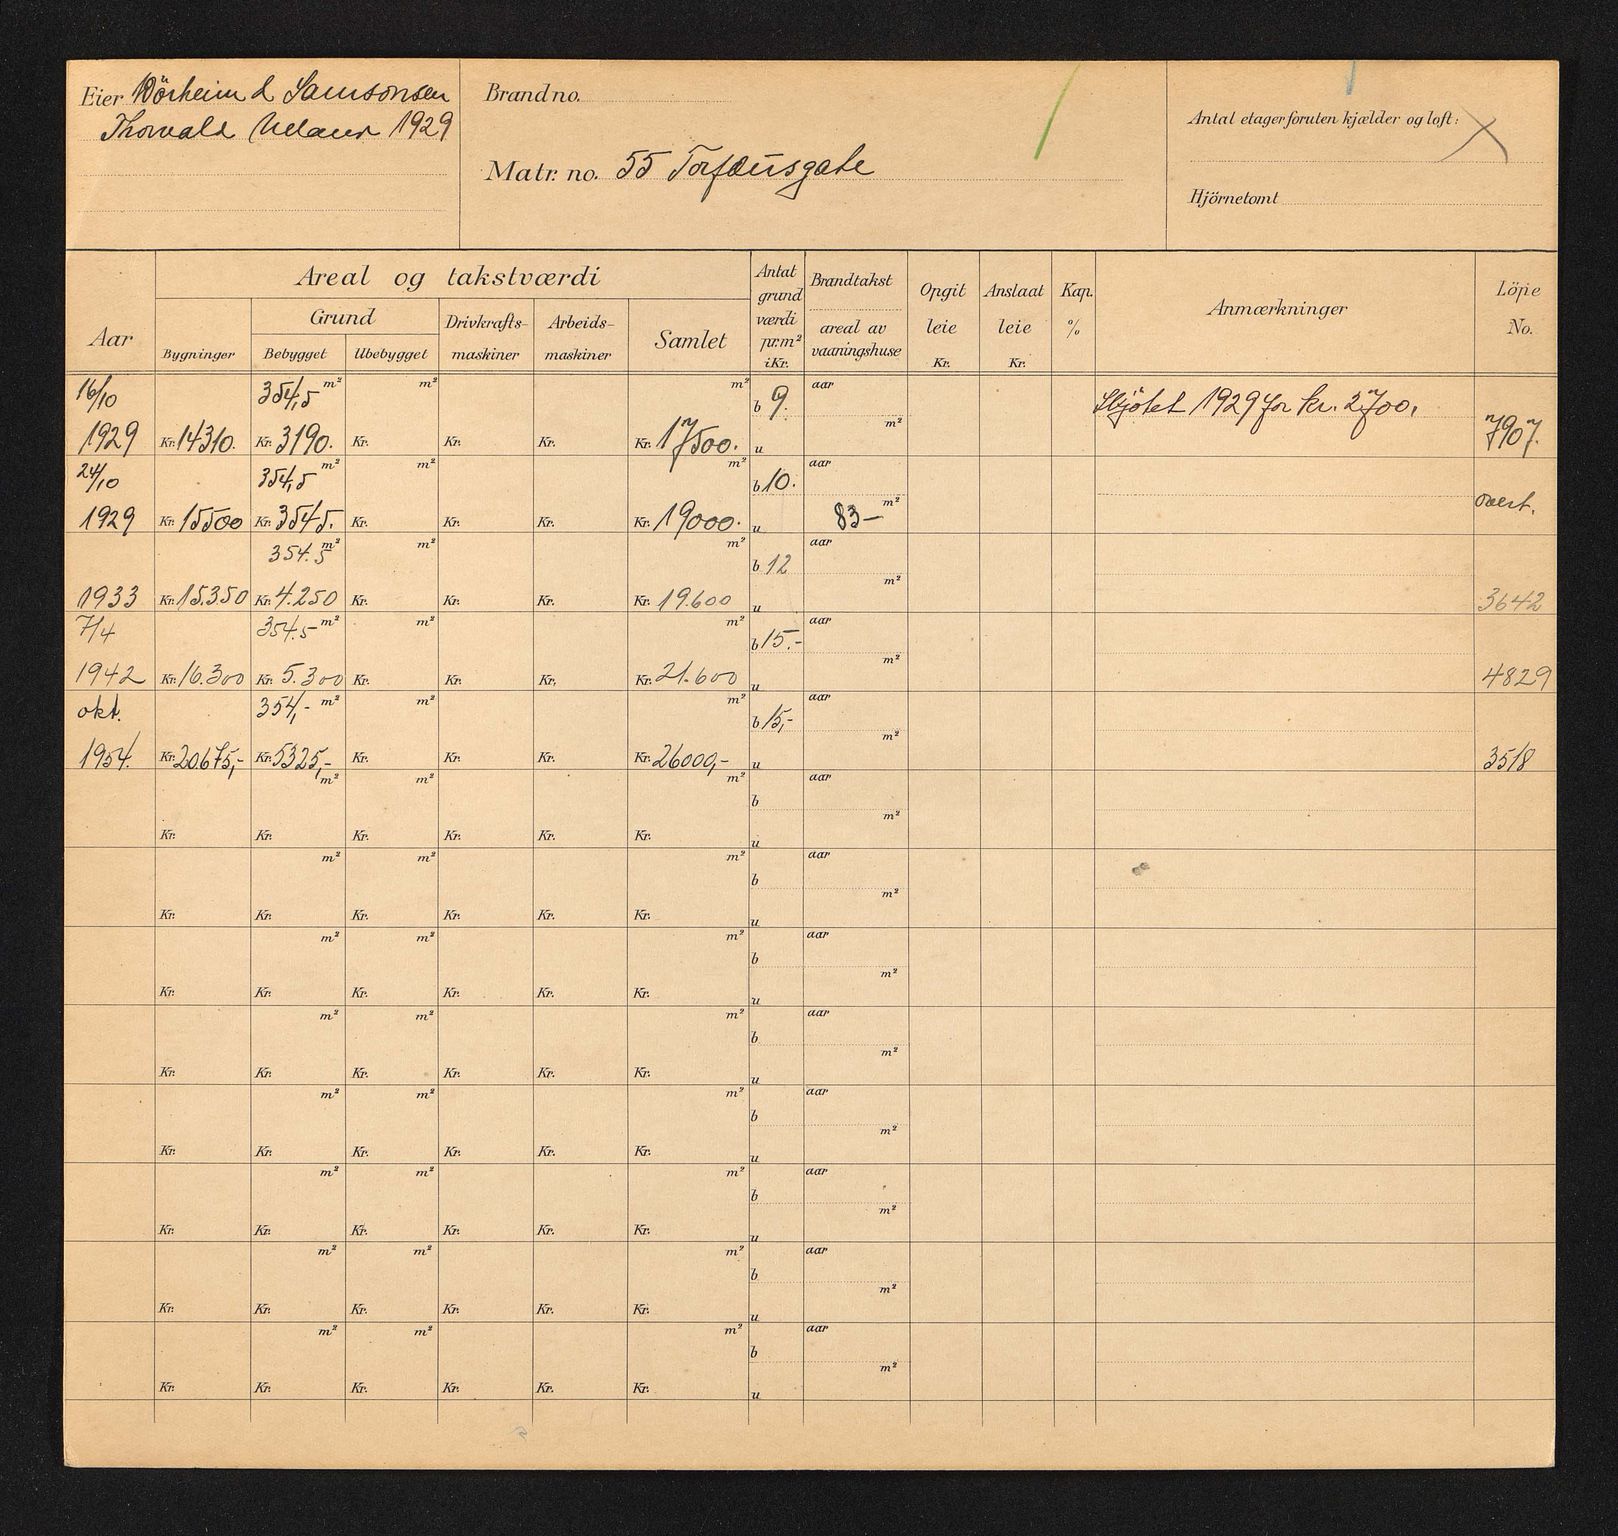 Eier Börheim & Samsonsen
Thorvald 1929
Brandno.
Matr. no. 55 Torfæusgate
Antal etager foruten kjælder og loft:
Hjörnetomt
Aar
Areal og takstværdi
Bygninger
Grund
Bebygget
Ubebygget
Drivkrafts-
maskiner
Arbeids-
maskiner
Samlet
Antat
grund
værdi
pr.m²
i Kr.
Brandtakst
areal av
vaaningshuse
Opgit
leie
Kr.
Anslaat
leie
Kr.
Kap.
%
Anmærkninger
Löpe
No.
16/10 354,5 m² m² m² b 9. aar Skjøtet 1929 for kr. 2700.
1929 Kr. 14310. Kr. 3190. Kr. Kr. Kr. Kr. 17500. u m² 7907.
24/10 354,5 m² m² m² b 10. aar
1929 Kr. 15500 Kr. 3545. Kr. Kr. Kr. Kr. 19000. u 83- m² overt.
354.5 m² m² m² b 12 aar
1933 Kr. 15.350 Kr. 4.250 Kr. Kr. Kr. Kr. 19.600 u m² 3642
7/4 354.5- m² m² m² b 15.- aar
1942 Kr. 16.300 Kr. 5.300 Kr. Kr. Kr. Kr. 21.600 u m² 4829
okt. 354,- m² m² m² b 15,- aar
1954. Kr. 20675,- Kr. 5325,- Kr. Kr. Kr. Kr. 26000,- u m² 3518
m² m² m² b aar
Kr. Kr. Kr. Kr. Kr. Kr. u m²
m² m² m² b aar
Kr. Kr. Kr. Kr. Kr. Kr. u m²
m² m² m² b aar
Kr. Kr. Kr. Kr. Kr. Kr. u m²
m² m² m² b aar
Kr. Kr. Kr. Kr. Kr. Kr. u m²
m² m² m² b aar
Kr. Kr. Kr. Kr. Kr. Kr. u m²
m² m² m² b aar
Kr. Kr. Kr. Kr. Kr. Kr. u m²
m² m² m² b aar
Kr. Kr. Kr. Kr. Kr. Kr. u m²
m² m² m² b aar
Kr. Kr. Kr. Kr. Kr. Kr. u m²